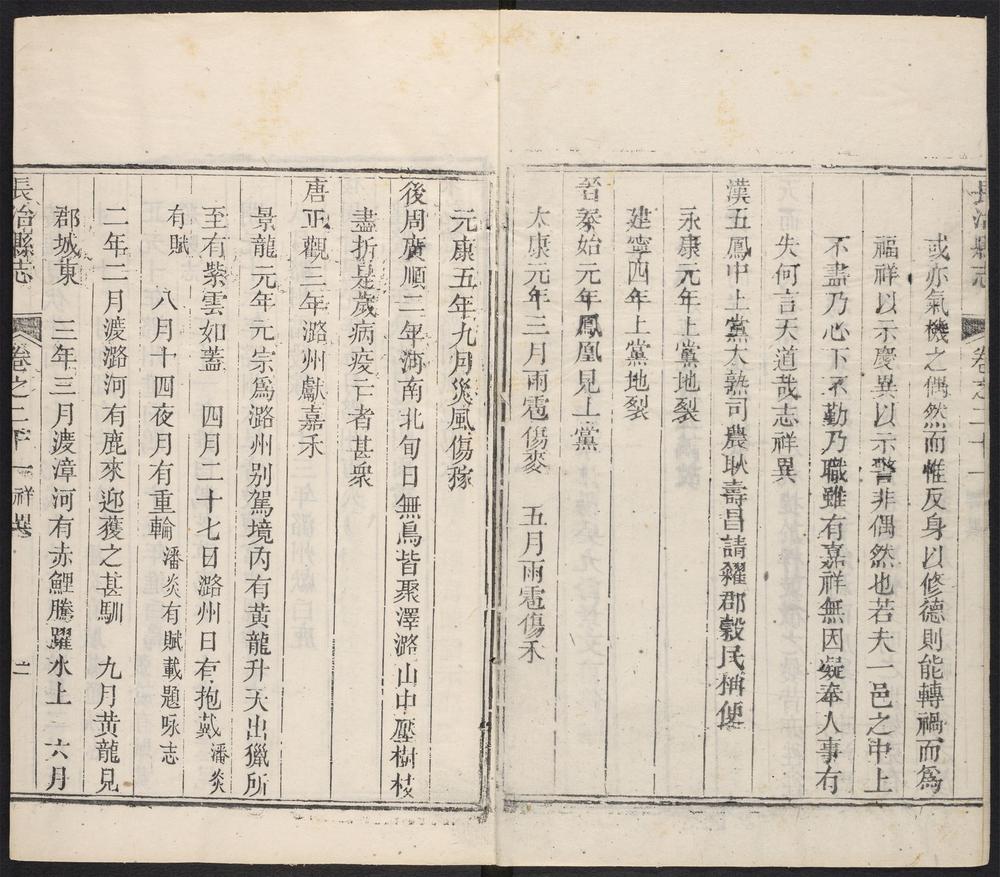 長治縣志 卷之二十一
或亦氣機之偶然而惟反身以修德則能轉禍而爲
福祥以示慶異以示警非偶然也若夫一邑之中上
不盡乃心下不勤乃職雖有嘉祥無因凝奉人事有
失何言天道哉志祥異
漢五鳳中上黨大熟司農耿壽昌請糴郡穀民稱便
永康元年上黨地裂
建寧四年上黨地裂
晉泰始元年鳳凰見上黨
太康元年三月雨雹傷麥 五月雨雹傷禾
元康五年九月災風傷稼
後周廣順二年河南北旬日無鳥皆聚澤潞山中壓樹枝
盡折是歲病疫亡者甚衆
唐正觀三年潞州獻嘉禾
景龍元年元宗爲潞州別駕境內有黃龍升天出獵所
至有紫雲如蓋 四月二十七日潞州日有抱戴潘炎
有賦 八月十四夜月有重輪潘炎有賦載題咏志
二年二月渡潞河有鹿來迎獲之甚馴 九月黃龍見
郡城東 三年三月渡漳河有赤鯉騰躍水上 六月
長治縣志 卷之二十一 祥異 二